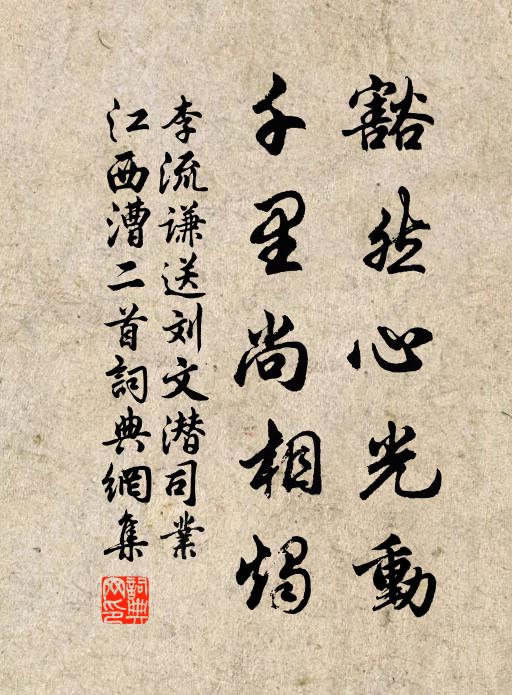 豁然心光動
千里尚相燭
李流谦送刘文潜司業
江西漕二首詞典網集
詞典网印